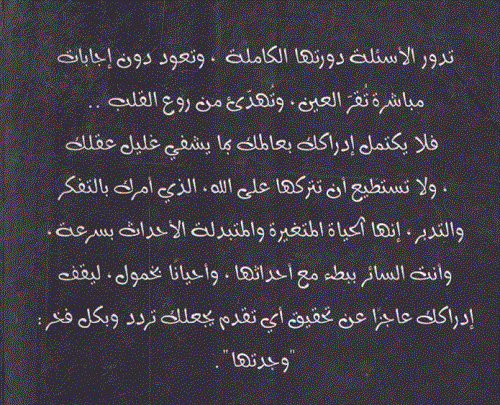 تدور الأسئلة دورتها الكاملة ، وتعود دون إجابات
مباشرة تُقرّ العين، وتُهدّئ من روع القلب ..
فلا يكتمل إدراكك بعالمك بما يشفي غليل عقلك
، ولا تستطيع أن تتركها على الله، الذي أمرك بالتفكر
والتدبر، إنها الحياة المتغيرة والمتبدلة الأحداث بسرعة،
وأنت السائر ببطء مع أحداثها ، وأحيانًا بخمول، ليقف
إدراكك عاجزا عن تحقيق أي تقدم يجعلك تردد وبكل فخر :
"وجدتها" .